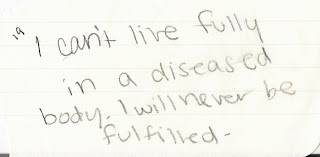 19
I can't live fully
in a diseased
body. I will never be
fulfilled-